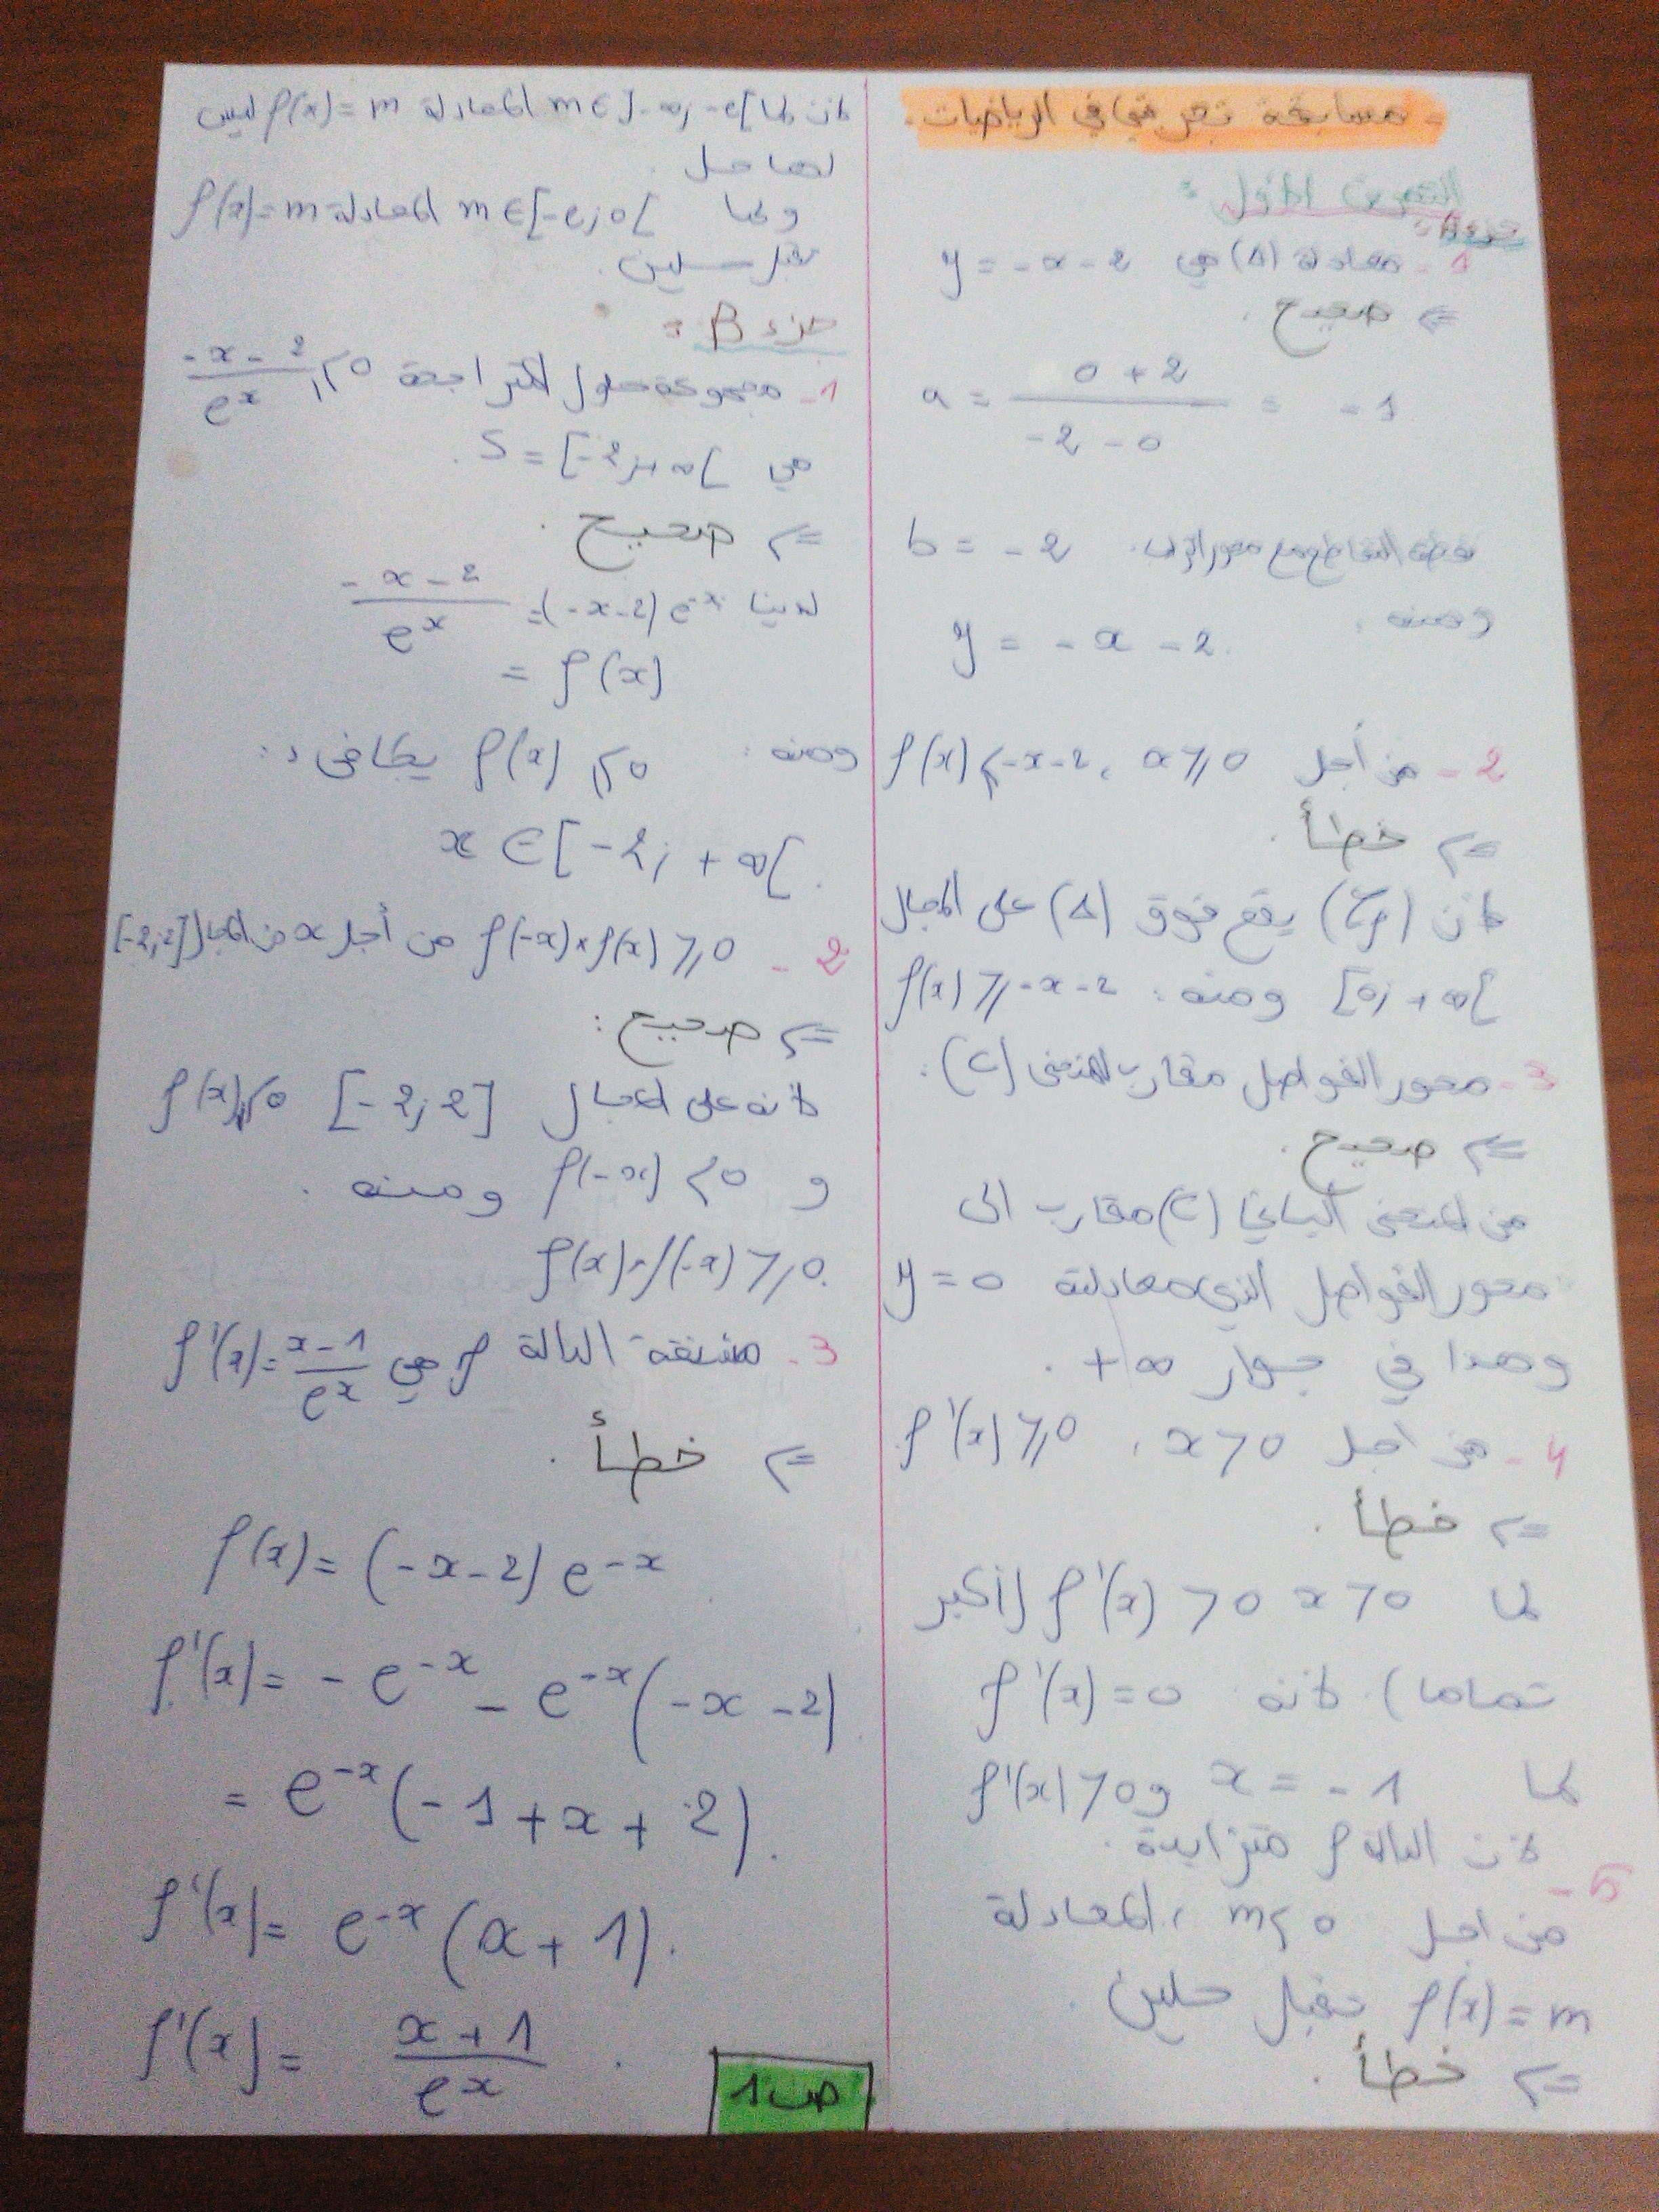 - مسابقة تجريبية في الرياضيات.
التمرين الأول :
جزء A:
1- معادلة (Δ) هي y = -x - 2
=> صحيح .
a = (0 + 2)/(-2 - 0) = -1
نقطة التقاطع مع محور b = -2
ومنه :
y = -x - 2.
2- من أجل x ⩾ 0 ، f(x) ⩽ -x-2
=> خطأ .
لأن (Cf) يقع فوق (Δ) على المجال
[0; +∞[ ومنه : f(x) ⩾ -x-2
3- محور الفواصل مقارب لمنحنى (C) .
=> صحيح .
من المنحنى البياني (C) مقارب الى
محور الفواصل الذي معادلته y = 0
وهذا في جوار +∞ .
4- من اجل x > 0 ، f'(x) ⩾ 0
=> خطأ .
لما x > 0 f'(x) > 0 (أكبر
تماما) لانه f'(x) = 0
لما x = -1 و f'(x) > 0
لأن الدالة f متزايدة .
5-
من اجل m ⩽ 0 ، المعادلة
f(x) = m تقبل حلين .
=> خطأ .
لأن لما m ∈ ]-∞; -e[ المعادلة f(x) = m ليس
لها حل .
ولما m ∈ [-e; 0[ المعادلة f(x) = m
تقبل حلين .
جزء B :
1- مجموعة حلول المتراجحة (-x-2)/e^x ⩽ 0
هي S = [-2; +∞[ .
=> صحيح .
لدينا (-x-2)/e^x = (-x-2) e^-x
= f(x)
ومنه : f(x) ⩽ 0 يكافىء :
x ∈ [-2; +∞[ .
2- f(-x) × f(x) ⩾ 0 من أجل x من المجال [-2; 2]
=> صحيح :
لأنه على المجال [-2; 2] f(x) ⩽ 0
و f(-x) ⩽ 0 ومنه .
f(x) × f(-x) ⩾ 0.
3- مشتقة الدالة f هي f'(x) = (x-1)/e^x
=> خطأ .
f(x) = (-x-2) e^-x
f'(x) = -e^-x - e^-x (-x-2)
= e^-x (-1+x+2) .
f'(x) = e^-x (x+1) .
f'(x) = (x+1)/e^x .
ص 1